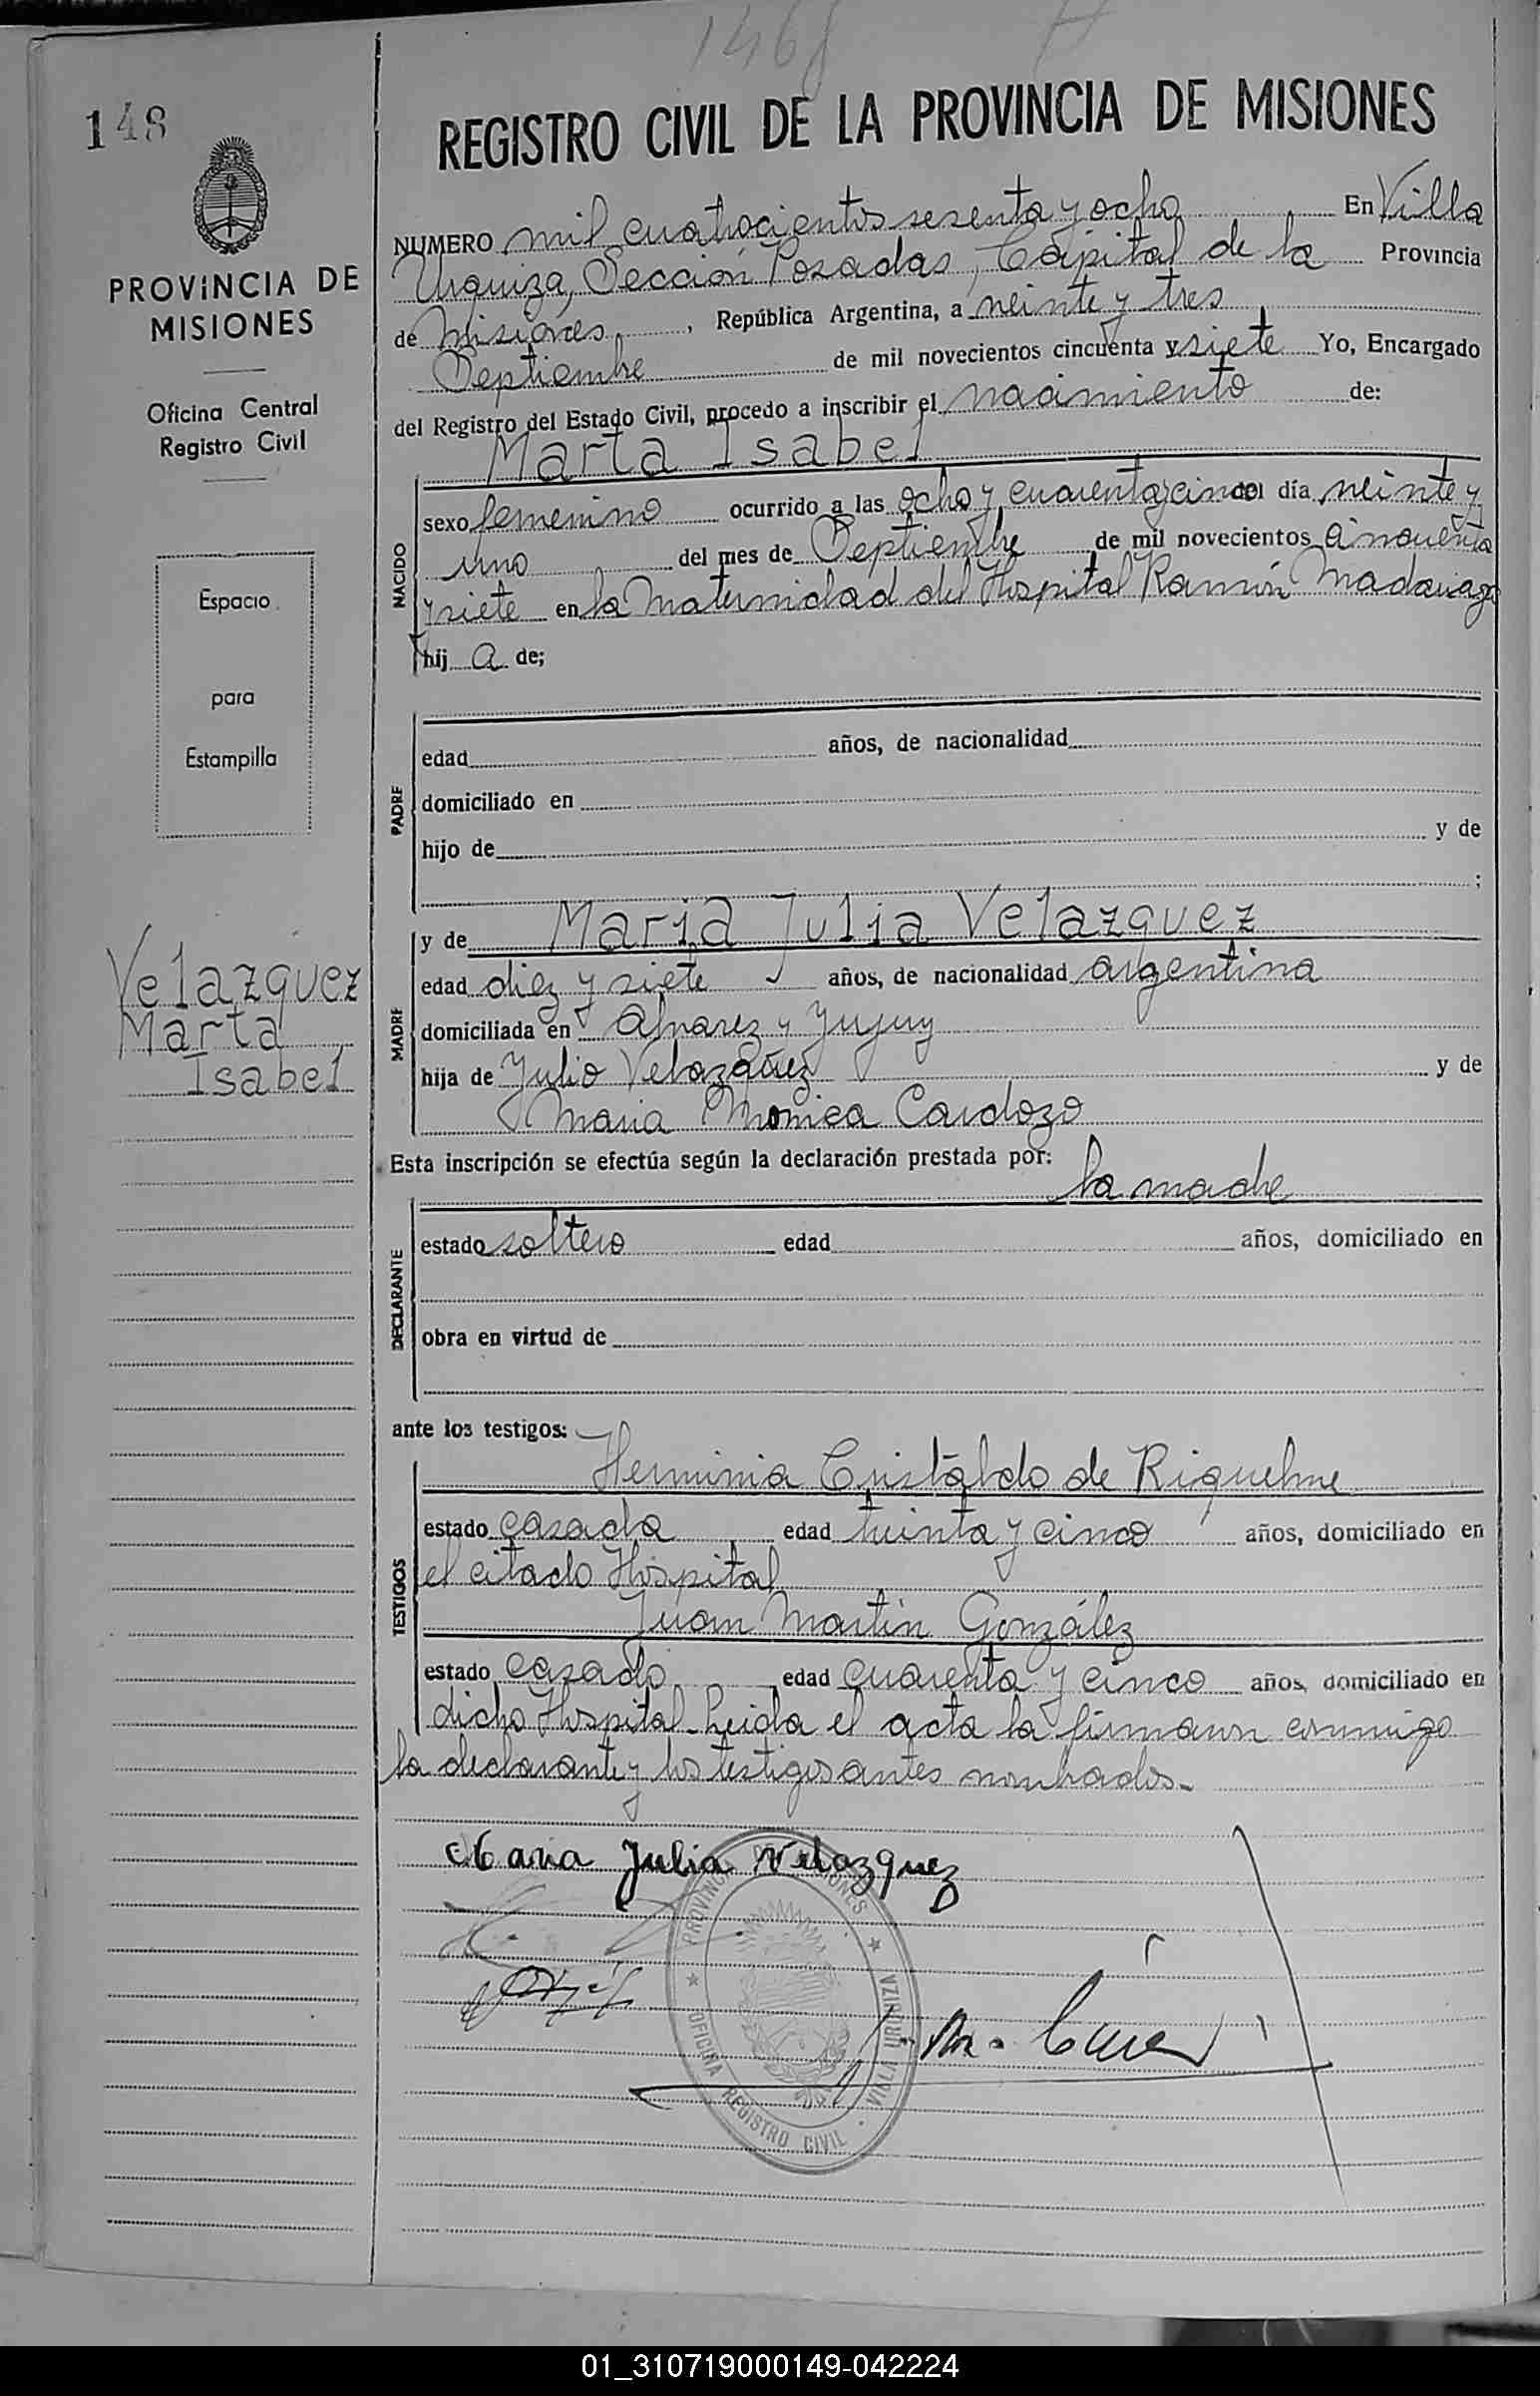 1468
148
REGISTRO CIVIL DE LA PROVINCIA DE MISIONES
PROVINCIA DE
MISIONES
Oficina Central
Registro Civil
Espacio
para
Estampilla
Velazquez
Marta
Isabel
NUMERO mil cuatrocientos sesenta y ocho En Villa
Urquiza, Sección Posadas, Capital de la Provincia
de Misiones, República Argentina, a veinte y tres
Septiembre de mil novecientos cincuenta y siete Yo, Encargado
del Registro del Estado Civil, procedo a inscribir el nacimiento de:
Marta Isabel
NACIDO
sexo femenino ocurrido a las ocho y cuarenta y cinco del día veinte y
uno del mes de Septiembre de mil novecientos cincuenta
y siete en la Maternidad del Hospital Ramón Madariaga
hij a de;
PADRE
edad años, de nacionalidad
domiciliado en
hijo de y de
;
MADRE
y de Maria Julia Velazquez
edad diez y siete años, de nacionalidad argentina
domiciliada en Alvarez y Jujuy
hija de Julio Velazquez y de
Maria Monica Cardozo
Esta inscripción se efectúa según la declaración prestada por:
la madre
DECLARANTE
estado soltero edad años, domiciliado en
obra en virtud de
ante los testigos:
Herminia Cristaldo de Riquelme
TESTIGOS
estado casada edad treinta y cinco años, domiciliado en
el citado Hospital
Juan Martin González
estado casado edad cuarenta y cinco años, domiciliado en
dicho Hospital - Leida el acta la firmaron conmigo
la declarante y los testigos antes nombrados.-
Maria Julia Velazquez
PROVINCIA MISIONES
OFICINA REGISTRO CIVIL
VILLA URQUIZA
01_310719000149-042224